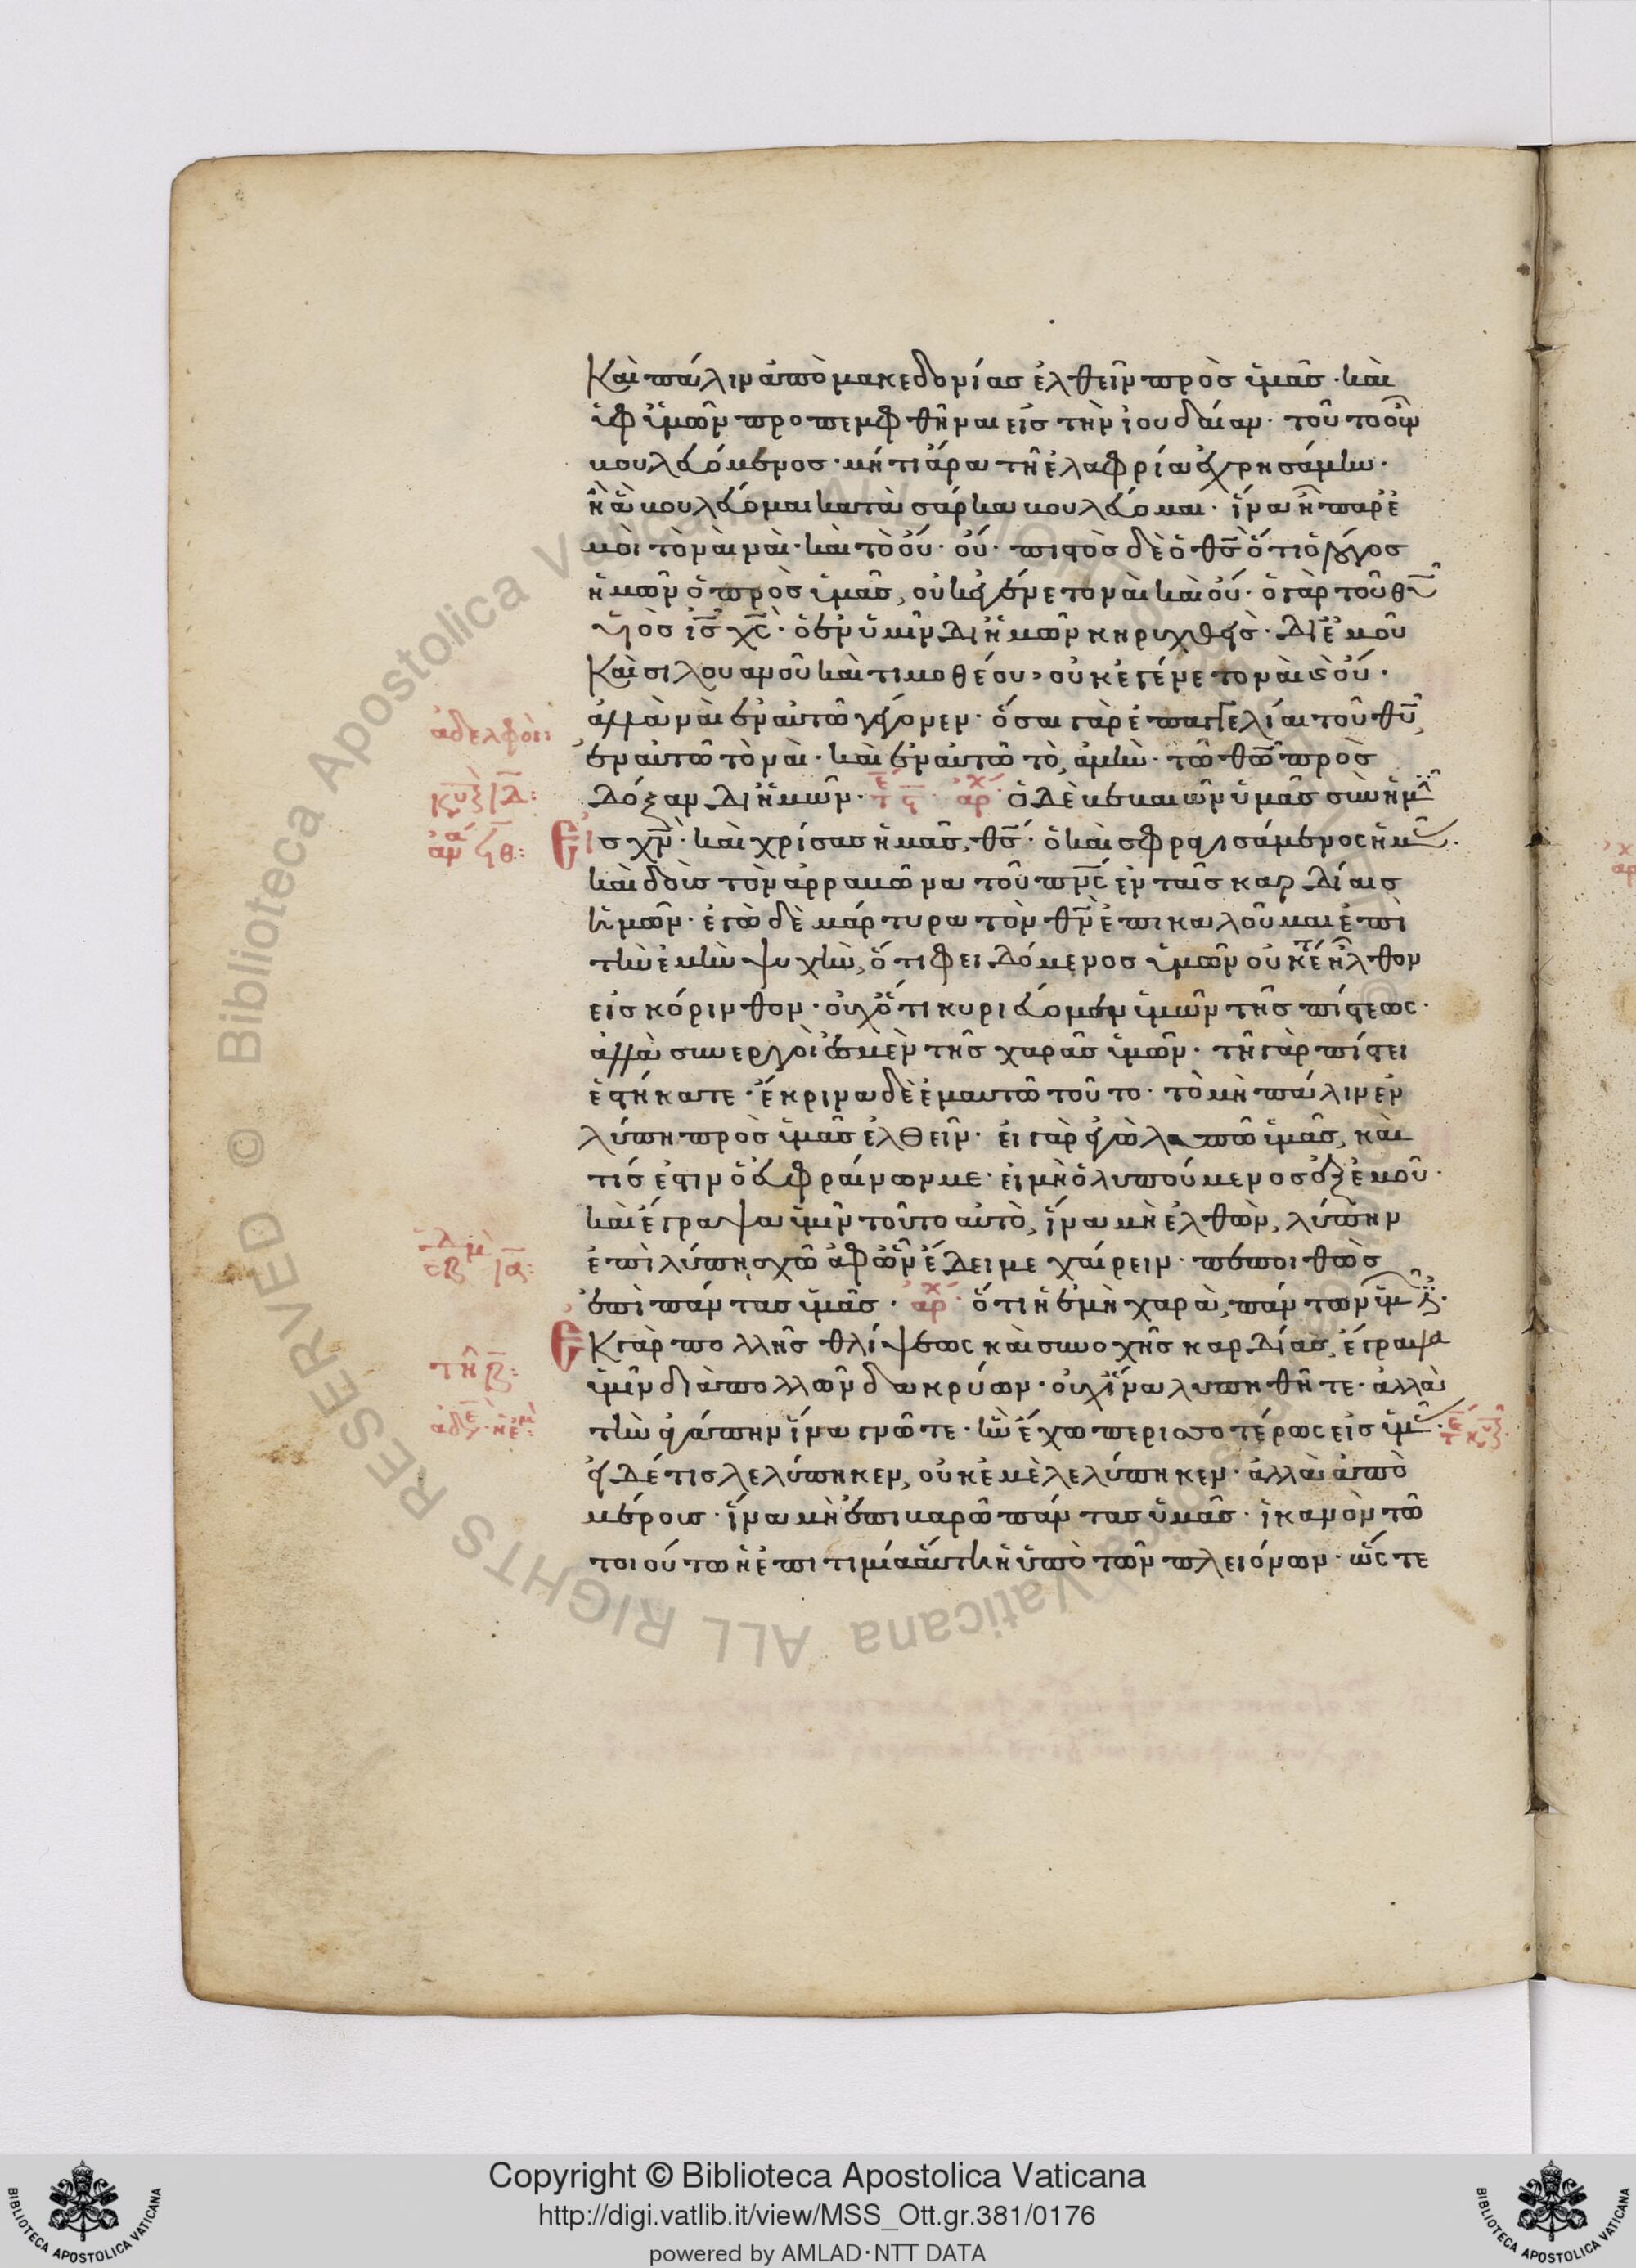 Καὶ πάλιν ἀπὸ μακεδονίας ἐλθεῖν πρὸς ὑμᾶς · καὶ
ὑφ ὑμῶν προπεμφθῆναι εἰς τὴν ἰουδαίαν · τοῦτο οὖν
βουλευόμενος · μή τι ἄρα τῆ ἐλαφρία ἐχρησάμην ·
ἢ ἃ βουλεύομαι κατὰ σάρκα βουλεύομαι · ἵνα ἦ παρ ἐ
μοὶ τὸ ναὶ ναί · καὶ τὸ οὔ · οὔ · πιστὸς δὲ ὁ θς ὅτι ὁ λόγος
ἡμῶν ὁ πρὸς ὑμᾶς, οὐκ ἐγένετο ναὶ καὶ οὔ · ὁ γὰρ τοῦ θυ
υἱὸς ις χς · ὁ ἐν ὑμῖν δι ἡμῶν κηρυχθεὶς · δι ἐμοῦ
Καὶ σιλουανοῦ καὶ τιμοθέου, οὐκ ἐγένετο ναὶ καὶ οὔ ·
ἀλλὰ ναὶ ἐν αὐτῶ γέγονεν · ὅσαι γὰρ ἐπαγγελίαι τοῦ θυ,
ἀδελφοὶ:
ἐν αὐτῶ τὸ ναί · καὶ ἐν αὐτῶ τὸ, ἀμὴν · τῶ θῶ πρὸς
δόξαν δι ἡμῶν · ὁ δὲ βεβαιῶν ὑμᾶς σὺν ἡμ
Εἰς χν · καὶ χρίσας ἡμᾶς, θς · ὁ καὶ σφραγισάμενος ἡμ ·
καὶ δοὺς τὸν ἀρραβῶνα τοῦ πνς ἐν ταῖς καρδίαις
ἡμῶν · ἐγὼ δὲ μάρτυρα τὸν θν ἐπικαλοῦμαι ἐπὶ
τὴν ἐμὴν ψυχὴν, ὅτι φειδόμενος ὑμῶν οὐκέτι ἦλθον
εἰς κόρινθον · οὐχ ὅτι κυριεύομεν ὑμῶν τῆς πίστεως ·
ἀλλὰ συνεργοί ἐσμὲν τῆς χαρᾶς ὑμῶν · τῆ γὰρ πίστει
ἑστήκατε · ἔκρινα δὲ ἐμαυτῶ τοῦτο · τὸ μὴ πάλιν ἐν
λύπη πρὸς ὑμᾶς ἐλθεῖν · εἰ γὰρ ἐγὼ λυπῶ ὑμᾶς, καὶ
τίς ἐστιν ὁ εὐφραίνων με · εἰ μὴ ὁ λυπούμενος ἐξ ἐμοῦ ·
καὶ ἔγραψα ὑμῖν τοῦτο αὐτὸ, ἵνα μὴ ἐλθὼν, λύπην
ἐπὶ λύπη σχῶ ἀφ ὧν ἔδει με χαίρειν · πεποιθὼς
ἐπὶ πάντας ὑμᾶς · ὅτι ἡ ἐμὴ χαρὰ, πάντων ὑμ
Εκ γὰρ πολλῆς θλίψεως καὶ συνοχῆς καρδίας, ἔγραψα
τῆ β:
ὑμῖν διὰ πολλῶν δακρύων · οὐχ ἵνα λυπηθῆτε · ἀλλὰ
τὴν ἀγάπην ἵνα γνῶτε · ἣν ἔχω περισσοτέρως εἰς ὑμ ·
εἰ δέ τις λελύπηκεν, οὐκ ἐμὲ λελύπηκεν · ἀλλὰ ἀπὸ
μέρους · ἵνα μὴ ἐπιβαρῶ πάντας ὑμᾶς · ἱκανὸν τῶ
τοιούτω ἡ ἐπιτιμία αὕτη ἡ ὑπὸ τῶν πλειόνων · ὥστε
© Biblioteca Apostolica Vaticana ALL RIGHTS RESERVED
Copyright © Biblioteca Apostolica Vaticana
http://digi.vatlib.it/view/MSS_Ott.gr.381/0176
powered by AMLAD·NTT DATA
BIBLIOTECA APOSTOLICA VATICANA
BIBLIOTECA APOSTOLICA VATICANA